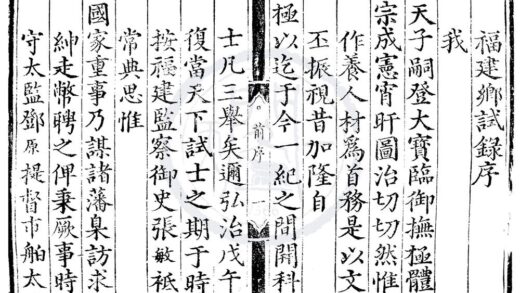 福建鄉試錄序
我
天子嗣登大寶臨御撫極體
宗成憲宵旰圖治切切然惟
作養人材爲首務是以文
丕振視昔加隆自
極以迄于今一紀之間開科
前序
一
士凡三舉矣邇弘治戊午
復當天下試士之期于時
按福建監察御史張敏祗
常典思惟
國家重事乃謀諸藩臬訪求
紳走幣聘之俾秉厥事時
守太監鄧原提督市舶太